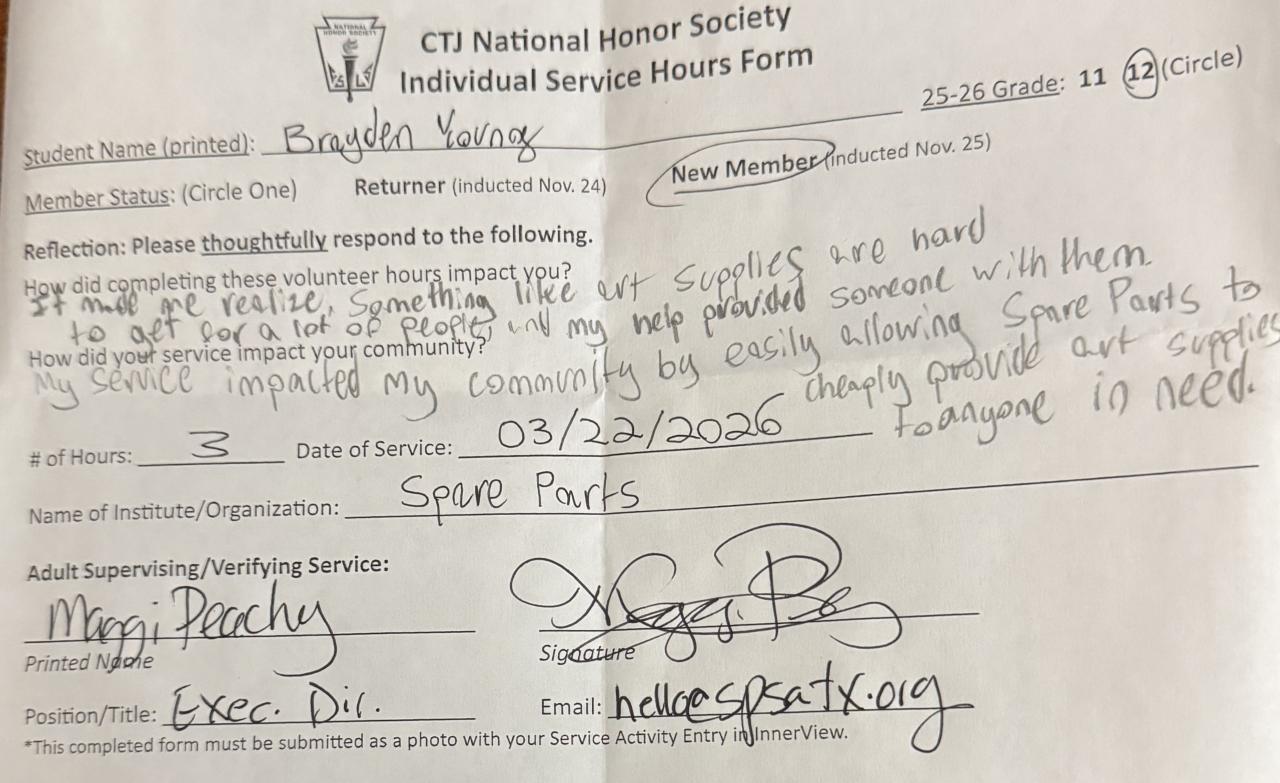 NATIONAL
HONOR SOCIETY
CTJ National Honor Society
Individual Service Hours Form
25-26 Grade: 11 12 (Circle)
Student Name (printed): Brayden Young
Member Status: (Circle One) Returner (inducted Nov. 24) New Member (inducted Nov. 25)
Reflection: Please thoughtfully respond to the following.
How did completing these volunteer hours impact you?
It made me realize, something like art supplies are hard
to get for a lot of people, and my help provided someone with them
How did your service impact your community?
My service impacted my community by easily allowing Spare Parts to
cheaply provide art supplies
to anyone in need.
# of Hours: 3 Date of Service: 03/22/2026
Name of Institute/Organization: Spare Parts
Adult Supervising/Verifying Service:
Maggi Peachy
Printed Name Signature
Position/Title: Exec. Dir. Email: hello@spsatx.org
*This completed form must be submitted as a photo with your Service Activity Entry in InnerView.